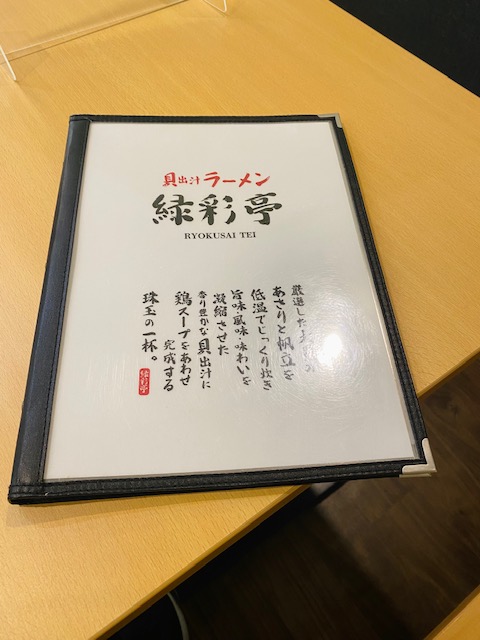 貝出汁ラーメン
緑彩亭
RYOKUSAI TEI
厳選した
あさりと帆立を
低温でじっくり炊き
旨味・風味・味わいを
凝縮させた
香り豊かな貝出汁に
鶏スープをあわせ
完成する
珠玉の一杯。
緑彩亭